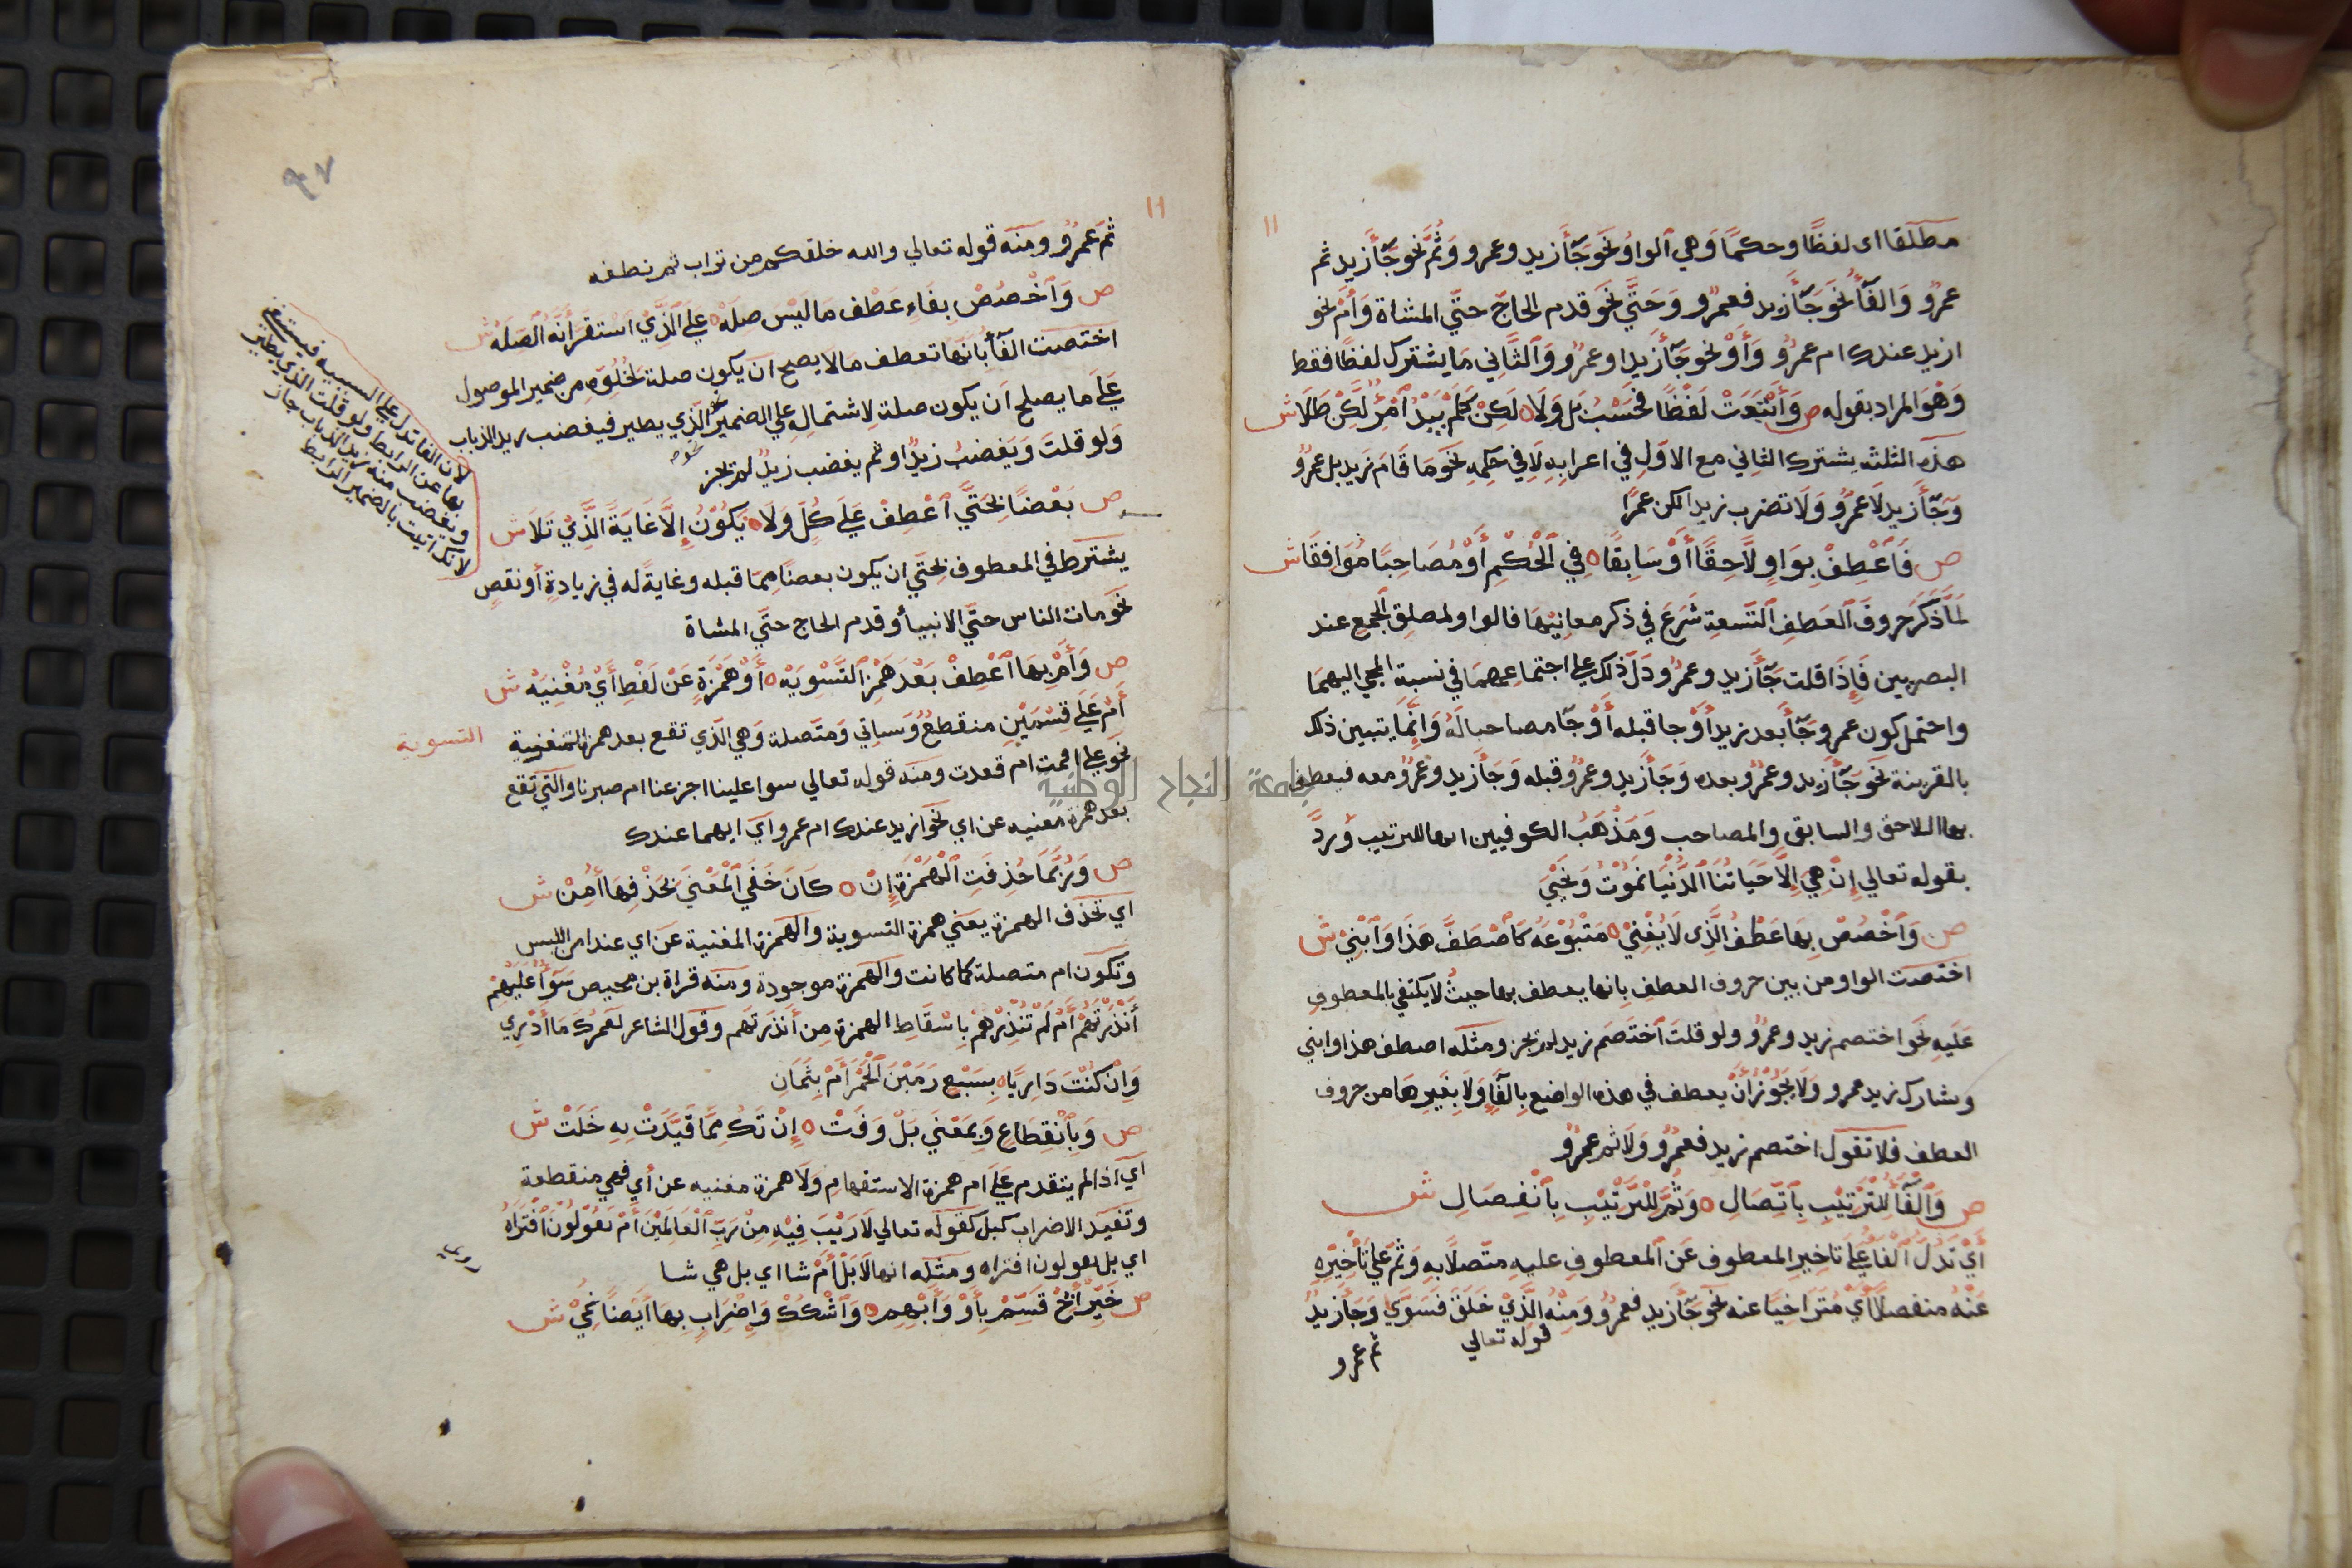 مطلقا اى لفظًا وحكمًا وَهي الواوُ نحَو جَآَ زيد وعمرو وَثُمَّ نحو جَآَ زيد ثم
عمرٌو وَالفَآُ نحَو جَآَ زيد فعمرٌو وَحَتَّي نحَو قدم الحاجّ حتَّي المشاة وَأَمْ نحو
ازيد عندك ام عمرٌو وَأَوْ نحو جَآَ زَيد او عمرٌو وَالثَّاني مَا يشترك لفظًا فقط
وَهْوَ المراد بقوله ص وَأَتْبَعَتْ لَفْظًا فَحَسْبُ بَل وَلَا ٥ لَكِنْ كَلَمْ يَبْدُ امْرُؤٌ لَكِنْ طَلَا ش
هذه الثلثه يشترك الثاني مع الاوّلِ في اعرابِهِ لَا في حكمِهِ نحَو مَا قَامَ زيد بل عمرٌو
وَجَآَ زَيد لَا عمرٌو وَلَا تضرب زيدا لكن عمرًا
ص فَاعْطِفْ بِوَاوٍ لَاحِقًا أَوْ سَابِقًا ٥ فِي الْحُكْمِ أَوْ مُصَاحِبًا مُوَافِقَا ش
لَمَّا ذَكَرَ حروفَ العَطفِ التّسعةِ شَرَعَ في ذكر معانيْهَا فالواو لمطلق الجمع عند
البصريين فَإِذَا قلت جَآَ زيد وعمرٌو دَلَّ ذلك علي اجتماعهمَا في نسبة المجي اليهمَا
واحتمل كون عمرو جَآَ بعد زيد أَوْ جا قبله أَوْ جَآ مصاحبا لَهُ وَانَّمَا يتبين ذلك
بالقرينة نحَو جَآَ زيد وعمرٌو بعده وَجَآَ زيد وعمرٌو قبله وَجَآَ زيد وعمرٌو معه فيعطف
بها اللاحق والسابق والمصاحب وَمَذْهَبُ الكوفيين انها للترتيب وَرُدَّ
بقوله تعالي إِنْ هِيَ اِلَّا حَيَاتُنَا الدُّنْيَا نَمُوْتُ وَنَحْيَ
ص وَاخْصُصْ بِهَا عَطْفَ الَّذِى لَا يُغْنِيْ ٥ مَتْبُوْعُهُ كَاصْطَفَّ هَذَا وَابْنِيْ ش
اختصت الواو من بين حروف العطفِ بِانها يعطف بها حيثُ لا يكتفي بالمعطوفِ
عَلَيهِ نحَو اختصم زيد وعمرٌو ولو قلتَ اخْتَصَم زيد لم تجز ومثله اصطف هذا وابني
وشارك زيد عمرو وَلَا يَجُوْزُ أَنْ يعطف في هذه المواضع بِالفَآءِ وَلَا بِغَيرِهَا من حروف
العطف فلا تقول اختصم زيد فعمرٌو وَلَا ثم عمرٌو
ص وَالْفَآُ لِلتَّرْتِيْبِ بِاتِّصَالِ ٥ وَثُمَّ لِلتَّرْتِيْبِ بِانْفِصَالِ ش
أَيْ تَدُلُّ الفَا عَلَي تاخيرِ المعطوف عَن المعطوفِ عليهِ متصلًا بهِ وَثُمَّ عَلَي تَأْخِيْرِهِ
عَنْهُ منفصلًا أَيْ مُتَرَاخيًا عنه نحو جَآَ زيد فعمرٌو وَمِنْهُ الَّذِيْ خَلَقَ فَسَوَّي وَجَآَ زَيدٌ
قوله تعالي
ثم عمرو
٩٧
١١
١١
ثُمَّ عمرٌو ومنه قوله تعالي والله خلقكم من تراب ثم نطفه
ص وَاخْصُصْ بِفَاءٍ عَطْفَ مَا لَيْسَ صِلَهْ ٥ عَلَي الَّذِيْ اسْتَقَرَّ أَنَّهُ الصِّلَهْ ش
اختصت الفآُ بانها تعطف ما لا يصح ان يكون صلة لخُلُوِّهِ من ضمير الموصول
عَلَي ما يصلح أن يكون صلة لِاشتمالِهِ علي الضمير نحو الَّذي يطير فيغضب زيد الذباب
وَلو قلتَ وَيَغضبُ زيدٌ او ثم يغضب زيدٌ لم تجز
ص بَعْضًا بِحَتَّي اعْطِفْ عَلَي كُلٍّ وَلَا ٥ يَكُوْنُ إِلَّا غَايَةَ الَّذِيْ تَلَا ش
يشترط في المعطوف بحَتَّي ان يكون بعضًا مِمّا قبله وغايةً له في زيادةِ أو نقصٍ
نحَو مات الناس حتَّي الانبيآُ وقدم الحاج حتَّي المشاة
ص وَأَمْ بِهَا اعْطِفْ بَعْدَ هَمْزِ التَّسْوِيَهْ ٥ أَوْ هَمْزَةٍ عَنْ لَفْظِ أَيٍّ مُغْنِيَهْ ش
أَمْ عَلَي قِسْمَيْنِ منقطعٌ وَسياتي وَمتَّصلة وَهي الَّذي تقع بعد همزة
التسوية
نحَو علي اقمت ام قعدت ومنه قوله تعالي سوا علينا اجزعنا ام صبرنا والّتي تقع
بعد همزة مغنيه عن اي نحَو ازيد عندك ام عمرو ايَ ايهما عندك
ص وَرُبَّمَا حُذِفَتِ الْهَمْزَةُ إِنْ ٥ كَانَ خَفَي الْمَعْنَي بِحَذْفِهَا أُمِنْ ش
اي تحذف الهمزة يعني همزة التسوية والهمزة المغنية عن اي عند امن اللبس
وتكون ام متصلة كما كانت والهمزة موجودة ومنه قراة بن محيص سَوَآءٌ عَلَيْهُمْ
أَنْذَرْتَهُمْ أَمْ لَمْ تُنْذِرْهُمْ بِاسْقَاطِ الهمزة مِن أَنذرتهم وقولِ الشاعر لعمرُكَ مَا أَدْرِي
وَاِنْ كُنْتَ دَارِيًا ٥ بِسَبْعٍ رَمَيْنَ الْجَمْرَ أَمْ بِثَمَانِ
ص وَبِانْقِطَاعٍ وَبِمَعْنَي بَلْ وَفَتْ ٥ إِنْ تَكُ مِمَّا قُيِّدَتْ بِهِ خَلَتْ ش
أي اذا لم يتقدم عَلَي ام همزة الاستفهامِ وَلَا همزة مغنيه عن أي فهي منقطعة
وتفيد الاضراب كبل كقوله تعالي لَا رَيْبَ فِيْهِ مِنْ رَبِّ الْعَالَمِيْنَ أَمْ يَقُوْلُوْنَ افْتَرَاهُ
اي بل يقولون افتراه ومثله انها لَابِلٌ أَمْ شا اي بل هي شا
ص خَيِّرْ أَبِحْ قَسِّمْ بِأَوْ وَأَبْهِمِ ٥ وَاشْكُكْ وَاِضْرَابٌ بها أَيضًا نُمِيْ ش
لان الفا تدل علي السببيه فيستغني
بها عن الرابط ولو قلت الذي يطير
ويغضب منه زيد الذباب جاز
لانك اتيت بالضمير الرابط
جامعة النجاح الوطنية